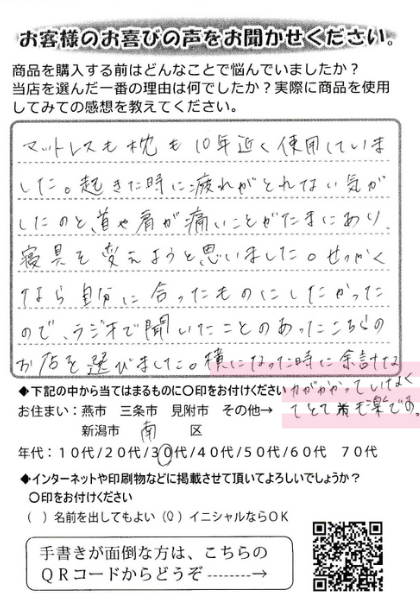 お客様のお喜びの声をお聞かせください。
商品を購入する前はどんなことで悩んでいましたか？
当店を選んだ一番の理由は何でしたか？実際に商品を使用
してみての感想を教えてください。
マットレスも枕も10年近く使用していま
した。起きた時に疲れがとれない気が
したのと、首や肩が痛いことがたまにあり、
寝具を変えようと思いました。せっかく
なら自分に合ったものにしたかった
ので、ラジオで聞いたことのあったこちらの
お店を選びました。横になった時に余計な
力がかかっていなくて
とても楽です。
◆下記の中から当てはまるものに〇印をお付けください
お住まい：燕市 三条市 見附市 その他→
新潟市 南 区
年代：10代/20代/30代/40代/50代/60代 70代
◆インターネットや印刷物などに掲載させて頂いてよろしいでしょうか？
〇印をお付けください
( )名前を出してもよい (〇)イニシャルならOK
手書きが面倒な方は、こちらの
QRコードからどうぞ --------→